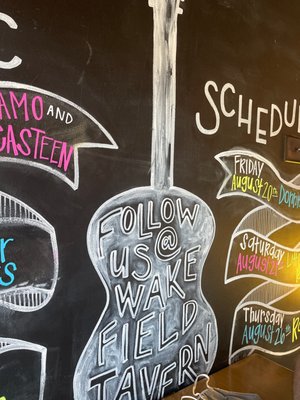 C
AMO AND
CASTEEN
FOLLOW
US @
WAKE
FIELD
TAVERN
SCHEDU
FRIDAY
AUGUST 20th
SATURDAY
AUGUST 21
THURSDAY
AUGUST 26th